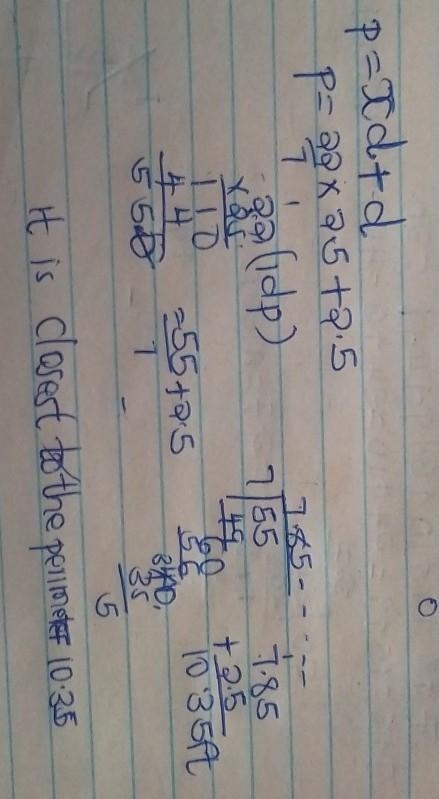 P = πd + d
P = 22/7 × 2.5 + 2.5
22 (1dp)
× 25
110
44
550
= 55/7 + 2.5
7.85-----
7 | 55
49
60
56
40
35
5
7.85
+ 2.5
10.35ft
It is closest to the perimeter 10.35